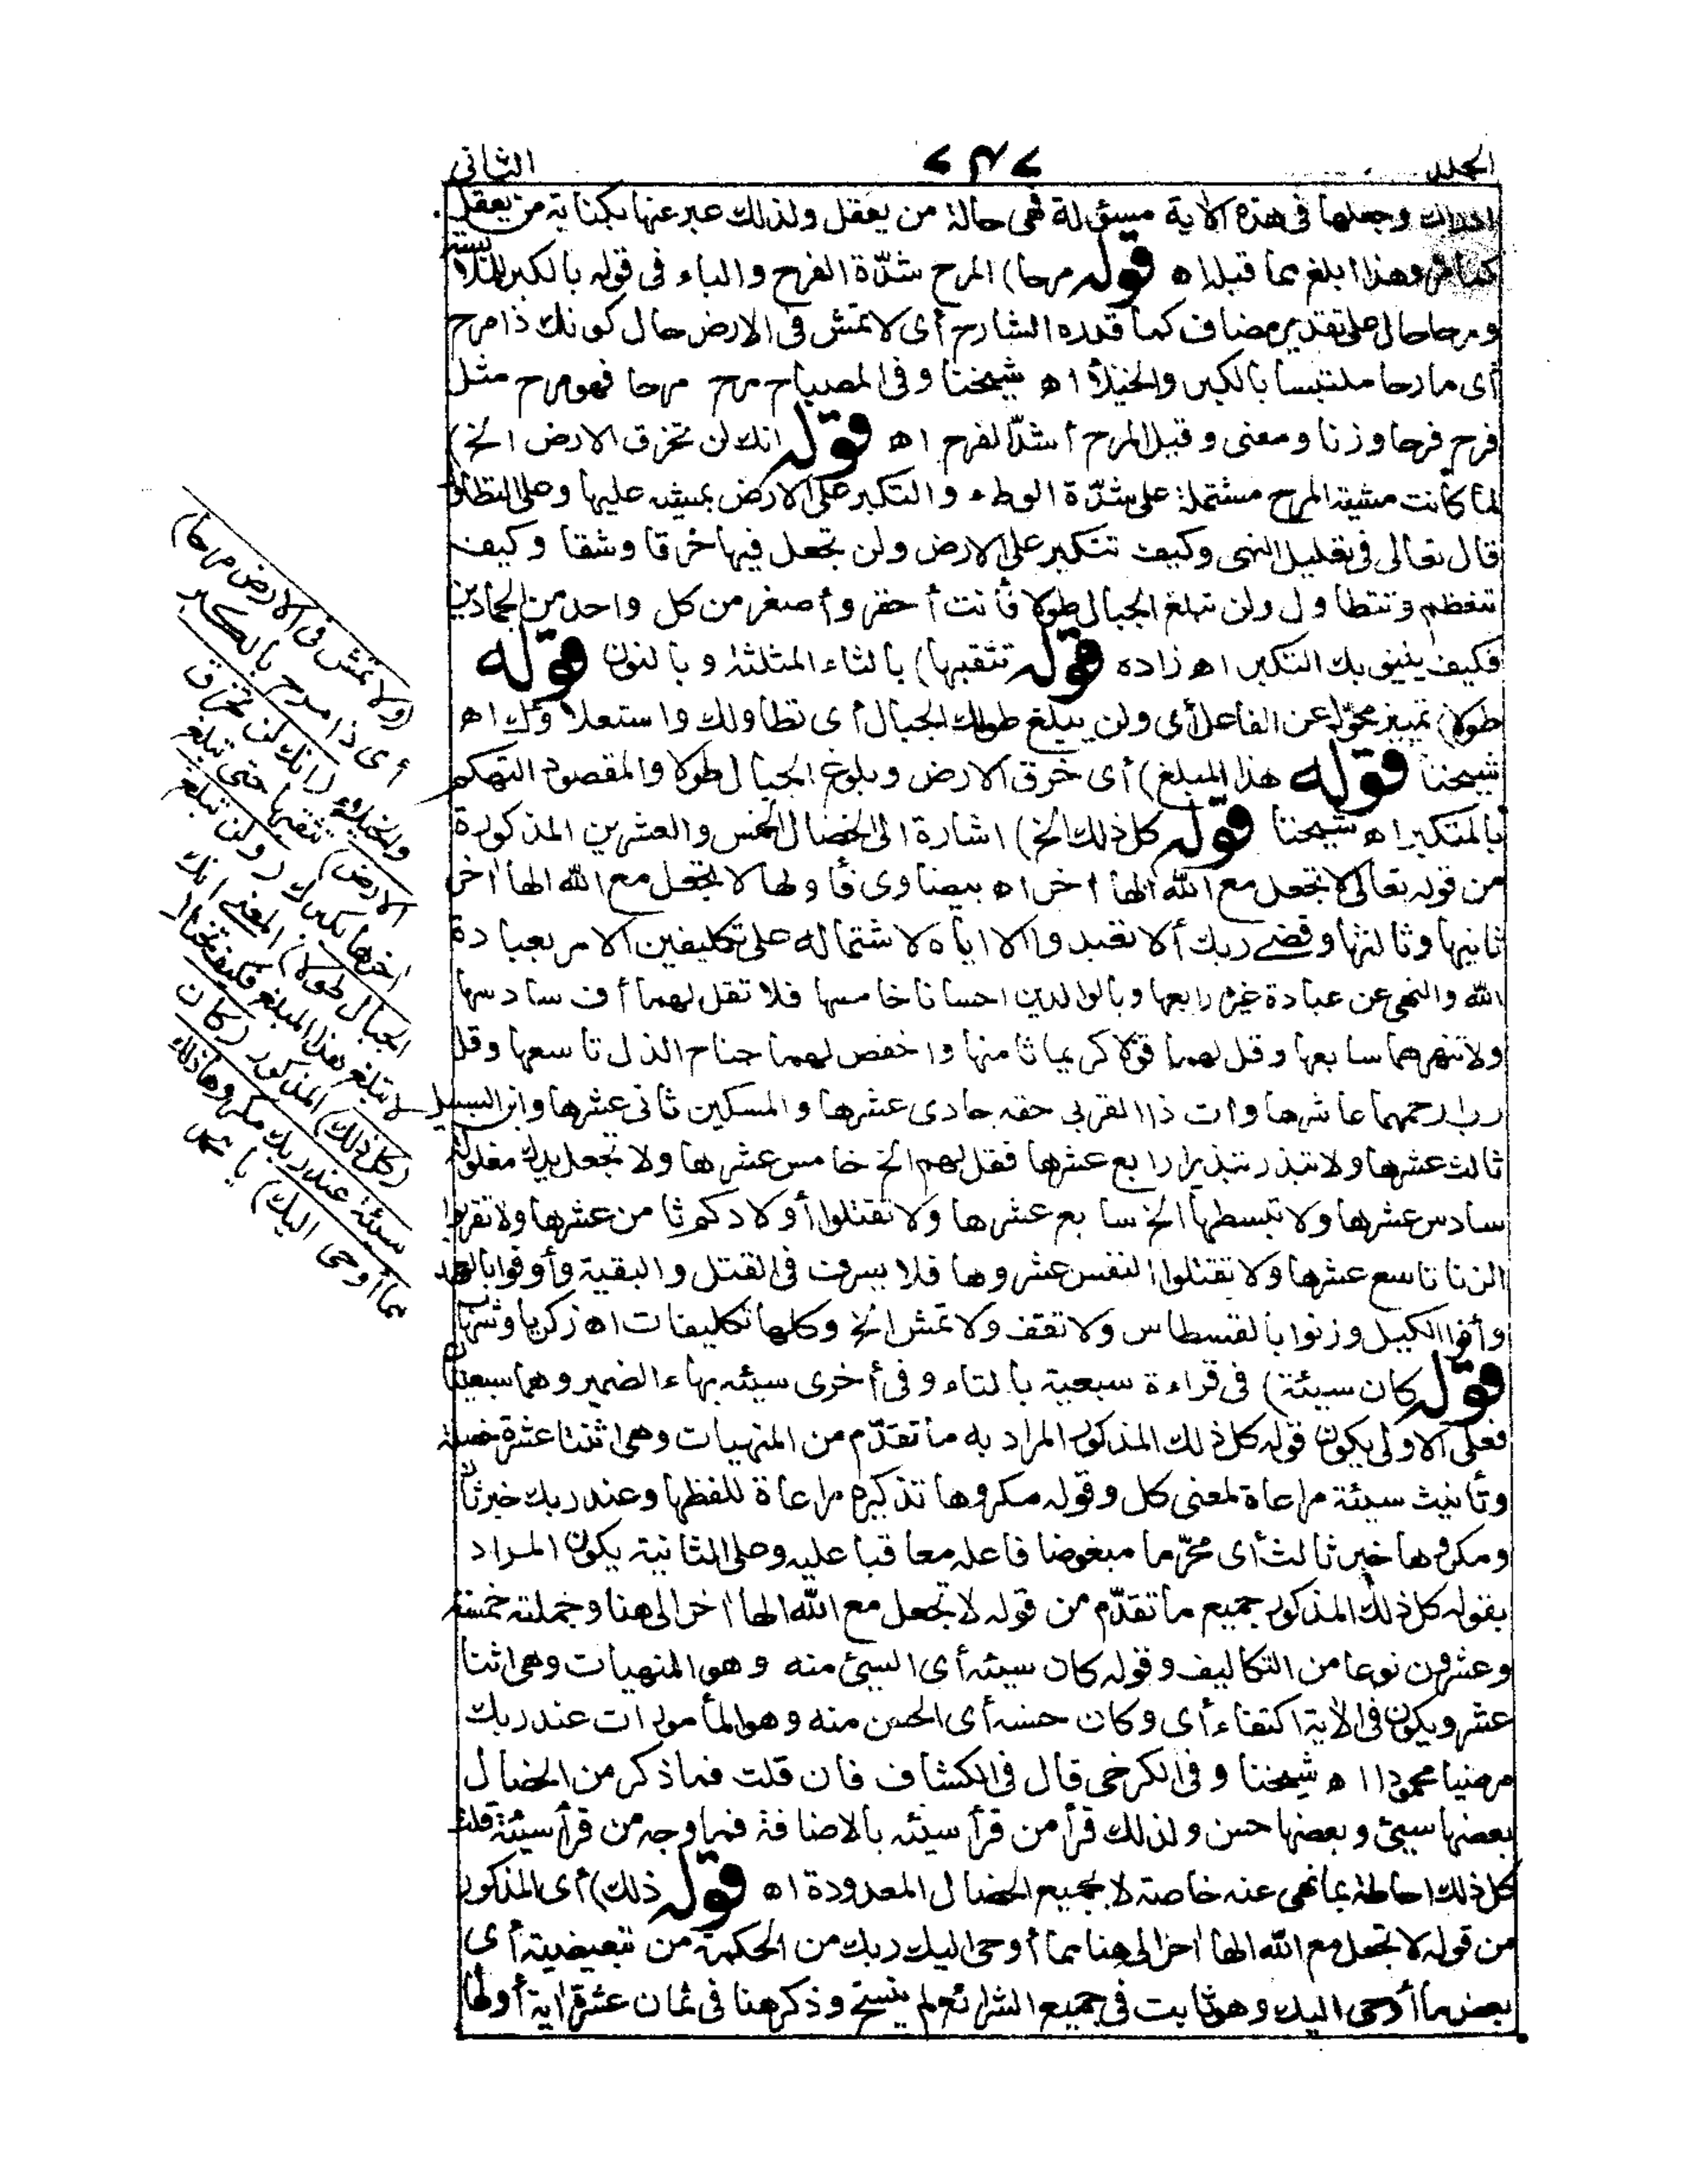 الجلد
٦٣٦
الثانى
ادراك وجعلها فى هذه الاية مسؤلة فهى حالة من يعقل ولذلك عبر عنها بكناية من يعقل
كما مر وهذا ابلغ مما قبله اه قوله مرحا) المرح شدّة الفرح والباء فى قوله بالكبر للملابسة
ومرحا حال على تقدير مضاف كما قدره الشارح أى لا تمش فى الارض حال كونك ذا مرح
أى مارحا ملتبسا بالكبر والخيلأ اه شيخنا وفى المصباح مرح مرحا فهو مرح مثل
فرح فرحا وزنا ومعنى وقيل المرح أشدّ الفرح اه قوله انك لن تخرق الارض الخ)
لما كانت مشية المرح مشتملة على شدّة الوطء والتكبر على الارض بمشيه عليها وعلى التطاول
قال تعالى فى تعليل النهى وكيف تتكبر على الارض ولن تجعل فيها خرقا وشقا وكيف
تتعظم وتتطاول ولن تبلغ الجبال طولا فأنت أحقر وأصغر من كل واحد من الجمادين
فكيف ينبغى بك التكبر اه زاده قوله تثقبها) بالثاء المثلثة وبالنون قوله
طولا) تمييز محوّل عن الفاعل أى ولن يبلغ طولك الجبال أى تطاولك واستعلاؤك اه
شيخنا قوله هذا المبلغ) أى خرق الارض وبلوغ الجبال طولا والمقصود التهكم
بالمتكبر اه شيخنا قوله كل ذلك الخ) اشارة الى الخصال الخمس والعشرين المذكورة
من قوله تعالى لا تجعل مع الله الها اخر اه بيضاوى فأولها لا تجعل مع الله الها اخر
ثانيها وثالثها وقضى ربك ألا تعبدوا الا اياه لاشتماله على تكليفين الامر بعبادة
الله والنهى عن عبادة غيره رابعها وبالوالدين احسانا خامسها فلا تقل لهما أف سادسها
ولا تنهرهما سابعها وقل لهما قولا كريما ثامنها واخفض لهما جناح الذل تاسعها وقل
رب ارحمهما عاشرها وات ذا القربى حقه حادى عشرها والمسكين ثانى عشرها وابن السبيل
ثالث عشرها ولا تبذر تبذيرا رابع عشرها فقل لهم الخ خامس عشرها ولا تجعل يدك مغلولة
سادس عشرها ولا تبسطها الخ سابع عشرها ولا تقتلوا أولادكم ثامن عشرها ولا تقربوا
الزنا تاسع عشرها ولا تقتلوا النفس عشروها فلا يسرف فى القتل والبقية وأوفوا بالعهد
وأوفوا الكيل وزنوا بالقسطاس ولا تقف ولا تمش الخ وكلها تكليفات اه زكريا وشهاب
قوله كان سيئة) فى قراءة سبعية بالتاء وفى أخرى سيئه بهاء الضمير وهما سبعيتان
فعلى الاولى يكون قوله كل ذلك المذكور المراد به ما تقدّم من المنهيات وهى اثنتا عشرة خصلة
وتأنيث سيئة مراعاة لمعنى كل وقوله مكروها تذكيره مراعاة للفظها وعند ربك خبر ثان
ومكروها خبر ثالث أى محرّما مبغوضا فاعله معاقبا عليه وعلى الثانية يكون المراد
بقوله كل ذلك المذكور جميع ما تقدّم من قوله لا تجعل مع الله الها اخر الى هنا وجملته خمسة
وعشرون نوعا من التكاليف وقوله كان سيئه أى السيئ منه وهو المنهيات وهى اثنا
عشر ويكون فى الاية اكتفاء أى وكان حسنه أى الحسن منه وهو المأمورات عند ربك
مرضيا محمودا اه شيخنا وفى الكرخى قال فى الكشاف فان قلت فما ذكر من الخصال
بعضها سيئ وبعضها حسن ولذلك قرأ من قرأ سيئه بالاضافة فما وجه من قرأ سيئة قلت
كل ذلك احاطة بما نهى عنه خاصة لا بجميع الخصال المعدودة اه قوله ذلك) أى المذكور
من قوله لا تجعل مع الله الها اخر الى هنا مما أوحى اليك ربك من الحكمة من تبعيضية أى
بعض ما أوحى اليك وهو ثابت فى جميع الشرائع لم ينسخ وذكر هنا فى ثمان عشرة اية أولها
(ولا تمش فى الارض مرحا)
أى ذا مرح بالكبر
والخيلاء (انك لن تخرق
الارض) تثقبها حتى تبلغ
اخرها بكبرك (ولن تبلغ
الجبال طولا) المعنى انك
لا تبلغ هذا المبلغ فكيف تختال
(كل ذلك) المذكور (كان
سيئة عند ربك مكروها ذلك
مما أوحى اليك) يا محمد